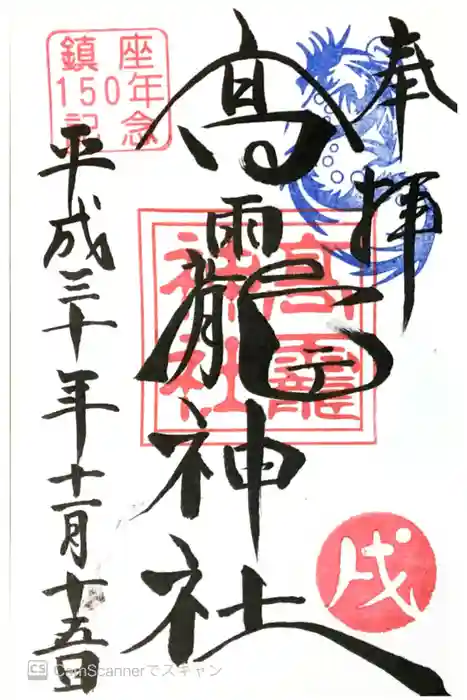 奉拝
高龗神社
高龗
神社
鎮座
150年
記念
平成三十年十一月十五日
戌
CS CamScannerでスキャン